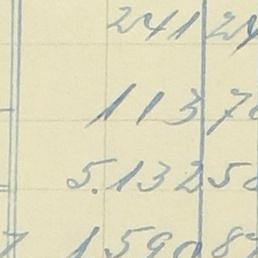 241 24
113 70
5.132 50
1590 87